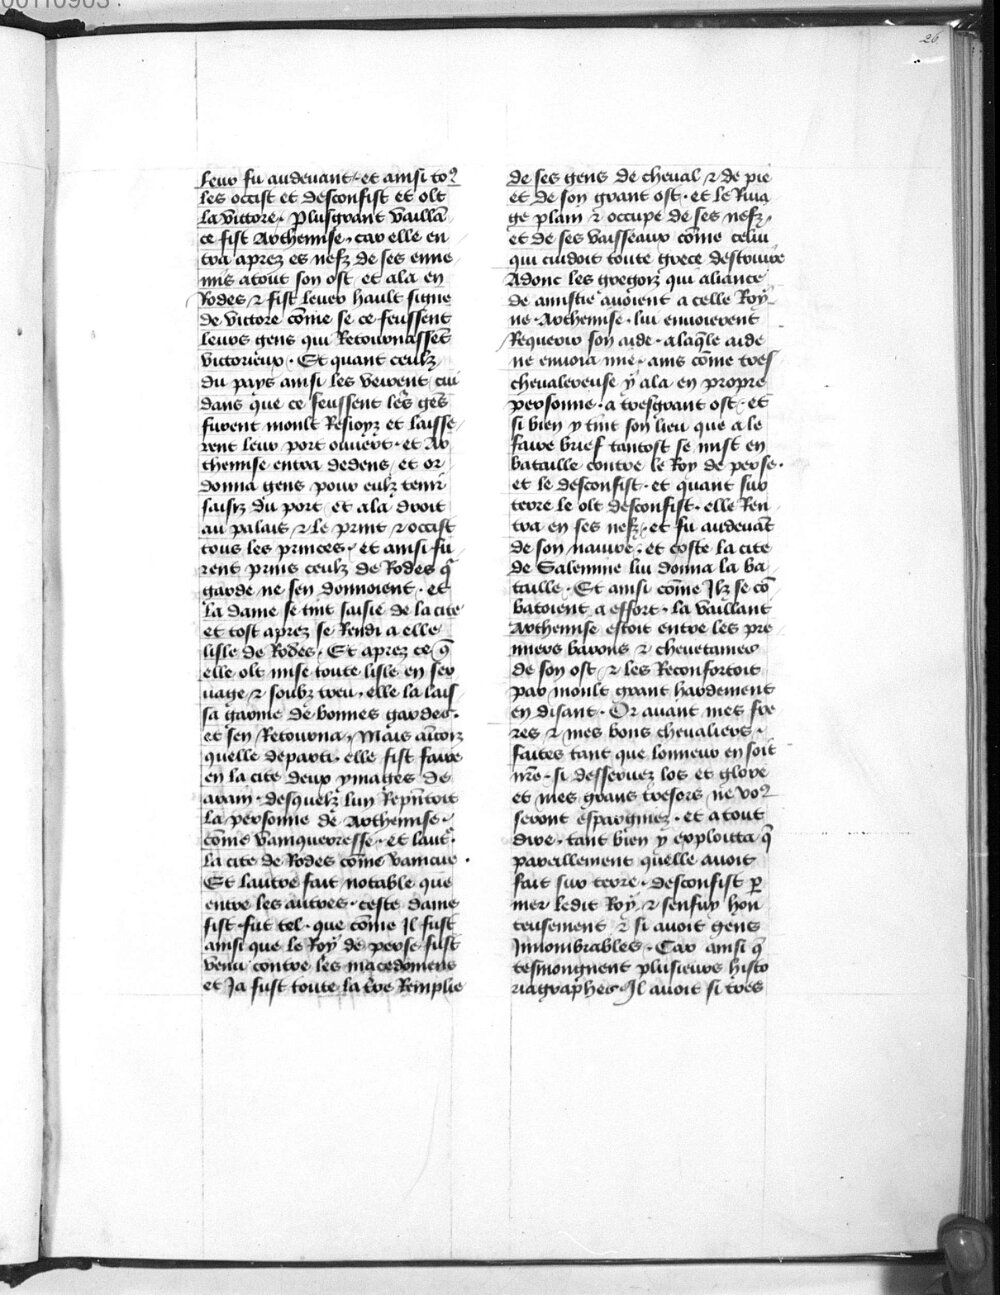 00110903
26
leur fu audeuant · et ainsi toꝰ
les occist et desconfist et olt
la victore · Plusgrant vaillā
ce fist Arthemise · car elle en
tra aprez es nefz de ses enne
mis atout son ost et ala en
Rodes ⁊ fist leuer hault signe
de victore cōme se ce feussent
leurs gens qui Retournassēt
victorieux · Et quant ceulz
du pays ainsi les veirent cui
dans que ce feussent les gēs
furent moult Resioyz et laisse
rent leur port ouuert · et Ar
themise entra dedens et or
donna gens pour eulz tenir
saisiz du port et ala droit
au palais ⁊ le print ⁊ occist
tous les princes · et ainsi fu
rent prins ceulz de Rodes q̄
garde ne sen donnoient · et
la dame se tint saisie de la cite
et tost aprez se Rendi a elle
lisle de Rodes · Et aprez ce q̄
elle olt mise toute lisle en ser
uage ⁊ soubz treu · elle la lais
sa garnie de bonnes gardes ·
et sen Retourna · Mais aincoiz
quelle departi · elle fist faire
en la cite deux ymages de
arain · desquelz lun Repn̄toit
la personne de Arthemise ·
cōme vainqueresse · et laut̄
la cite de Rodes cōme vaincue ·
Et lautre fait notable que
entre les autres · ceste dame
fist · fut tel · que cōme Il fust
ainsi que le Roy de perse fust
venu contre les macedoniens
et Ja fust toute la t̄re Remplie
de ses gens de cheual ⁊ de pie
et de son grant ost · et le Riua
ge plain ⁊ occupe de ses nefz
et de ses vaisseaux cōme celui
qui cuidoit toute grece destruire
Adonc les gregoiz qui aliance
de amistie auoient a celle Roy
ne · Arthemise · lui enuoierent
Requerir son aide · alaq̄le aide
ne enuoia mie · ains cōme tres
cheualereuse y ala en propre
personne · a tresgrant ost · et
si bien y tint son lieu que a le
faire brief tantost se mist en
bataille contre le Roy de perse ·
et le desconfist · et quant sur
terre le olt desconfist · elle Ren
tra en ses nefz · et fu audeuāt
de son nauire · et coste la cite
de Salemine lui donna la ba
taille · Et ainsi cōme Ilz se cō
batoient a effort · la vaillant
Arthemise estoit entre les pre
miers barons ⁊ cheuetaines
de son ost ⁊ les Reconfortoit
par moult grant hardement
en disant · Or auant mes fre
res ⁊ mes bons cheualiers ·
faites tant que lonneur en soit
nr̄e · si desseruez los et glore
et mes grans tresors ne voꝰ
seront espargniez · et a tout
dire · tant bien y exploitta q̄
pareillement quelle auoit
fait sur terre · desconfist ꝑ
mer ledit Roy ⁊ senfuy hon
teusement ⁊ si auoit gens
Innombrables · Car ainsi q̄
tesmongnent plusieurs histo
riagraphes Il auoit si tres